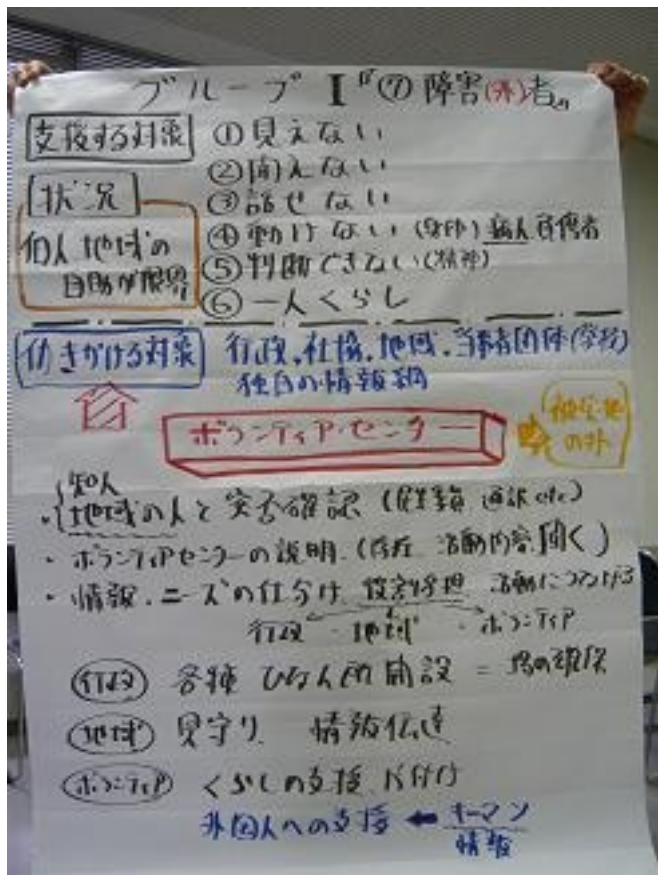 グループ I " ⑦ 障害(外)者"
支援する対象
① 見えない
② 聞えない
③ 話せない
④ 動けない 病人 負傷者
⑤ 判断できない(精神)
⑥ 一人くらし
状況
個人 地域の
自助が限界
働きかける対象
行政、社協、地域、当事者団体(学校)
独自の情報網
ボランティア・センター
被災地
の外
知人
・地域の人と安否確認 (保健員 通訳 etc)
・ボランティアセンターの説明 (存在 活動内容 聞く)
・情報、ニーズの仕分け 役割分担 活動につなげる
行政 ― 地域 ― ボランティア
行政 各種 ひなん所開設 = 場の確保
地域 見守り 情報伝達
ボランティア くらしの支援 片付け
外国人への支援 ← キーマン
情報